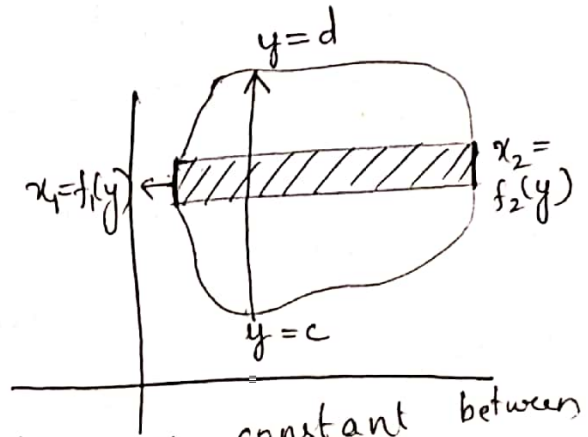 y = d
x₁=f₁(y)
x₂ =
f₂(y)
y = c
constant between